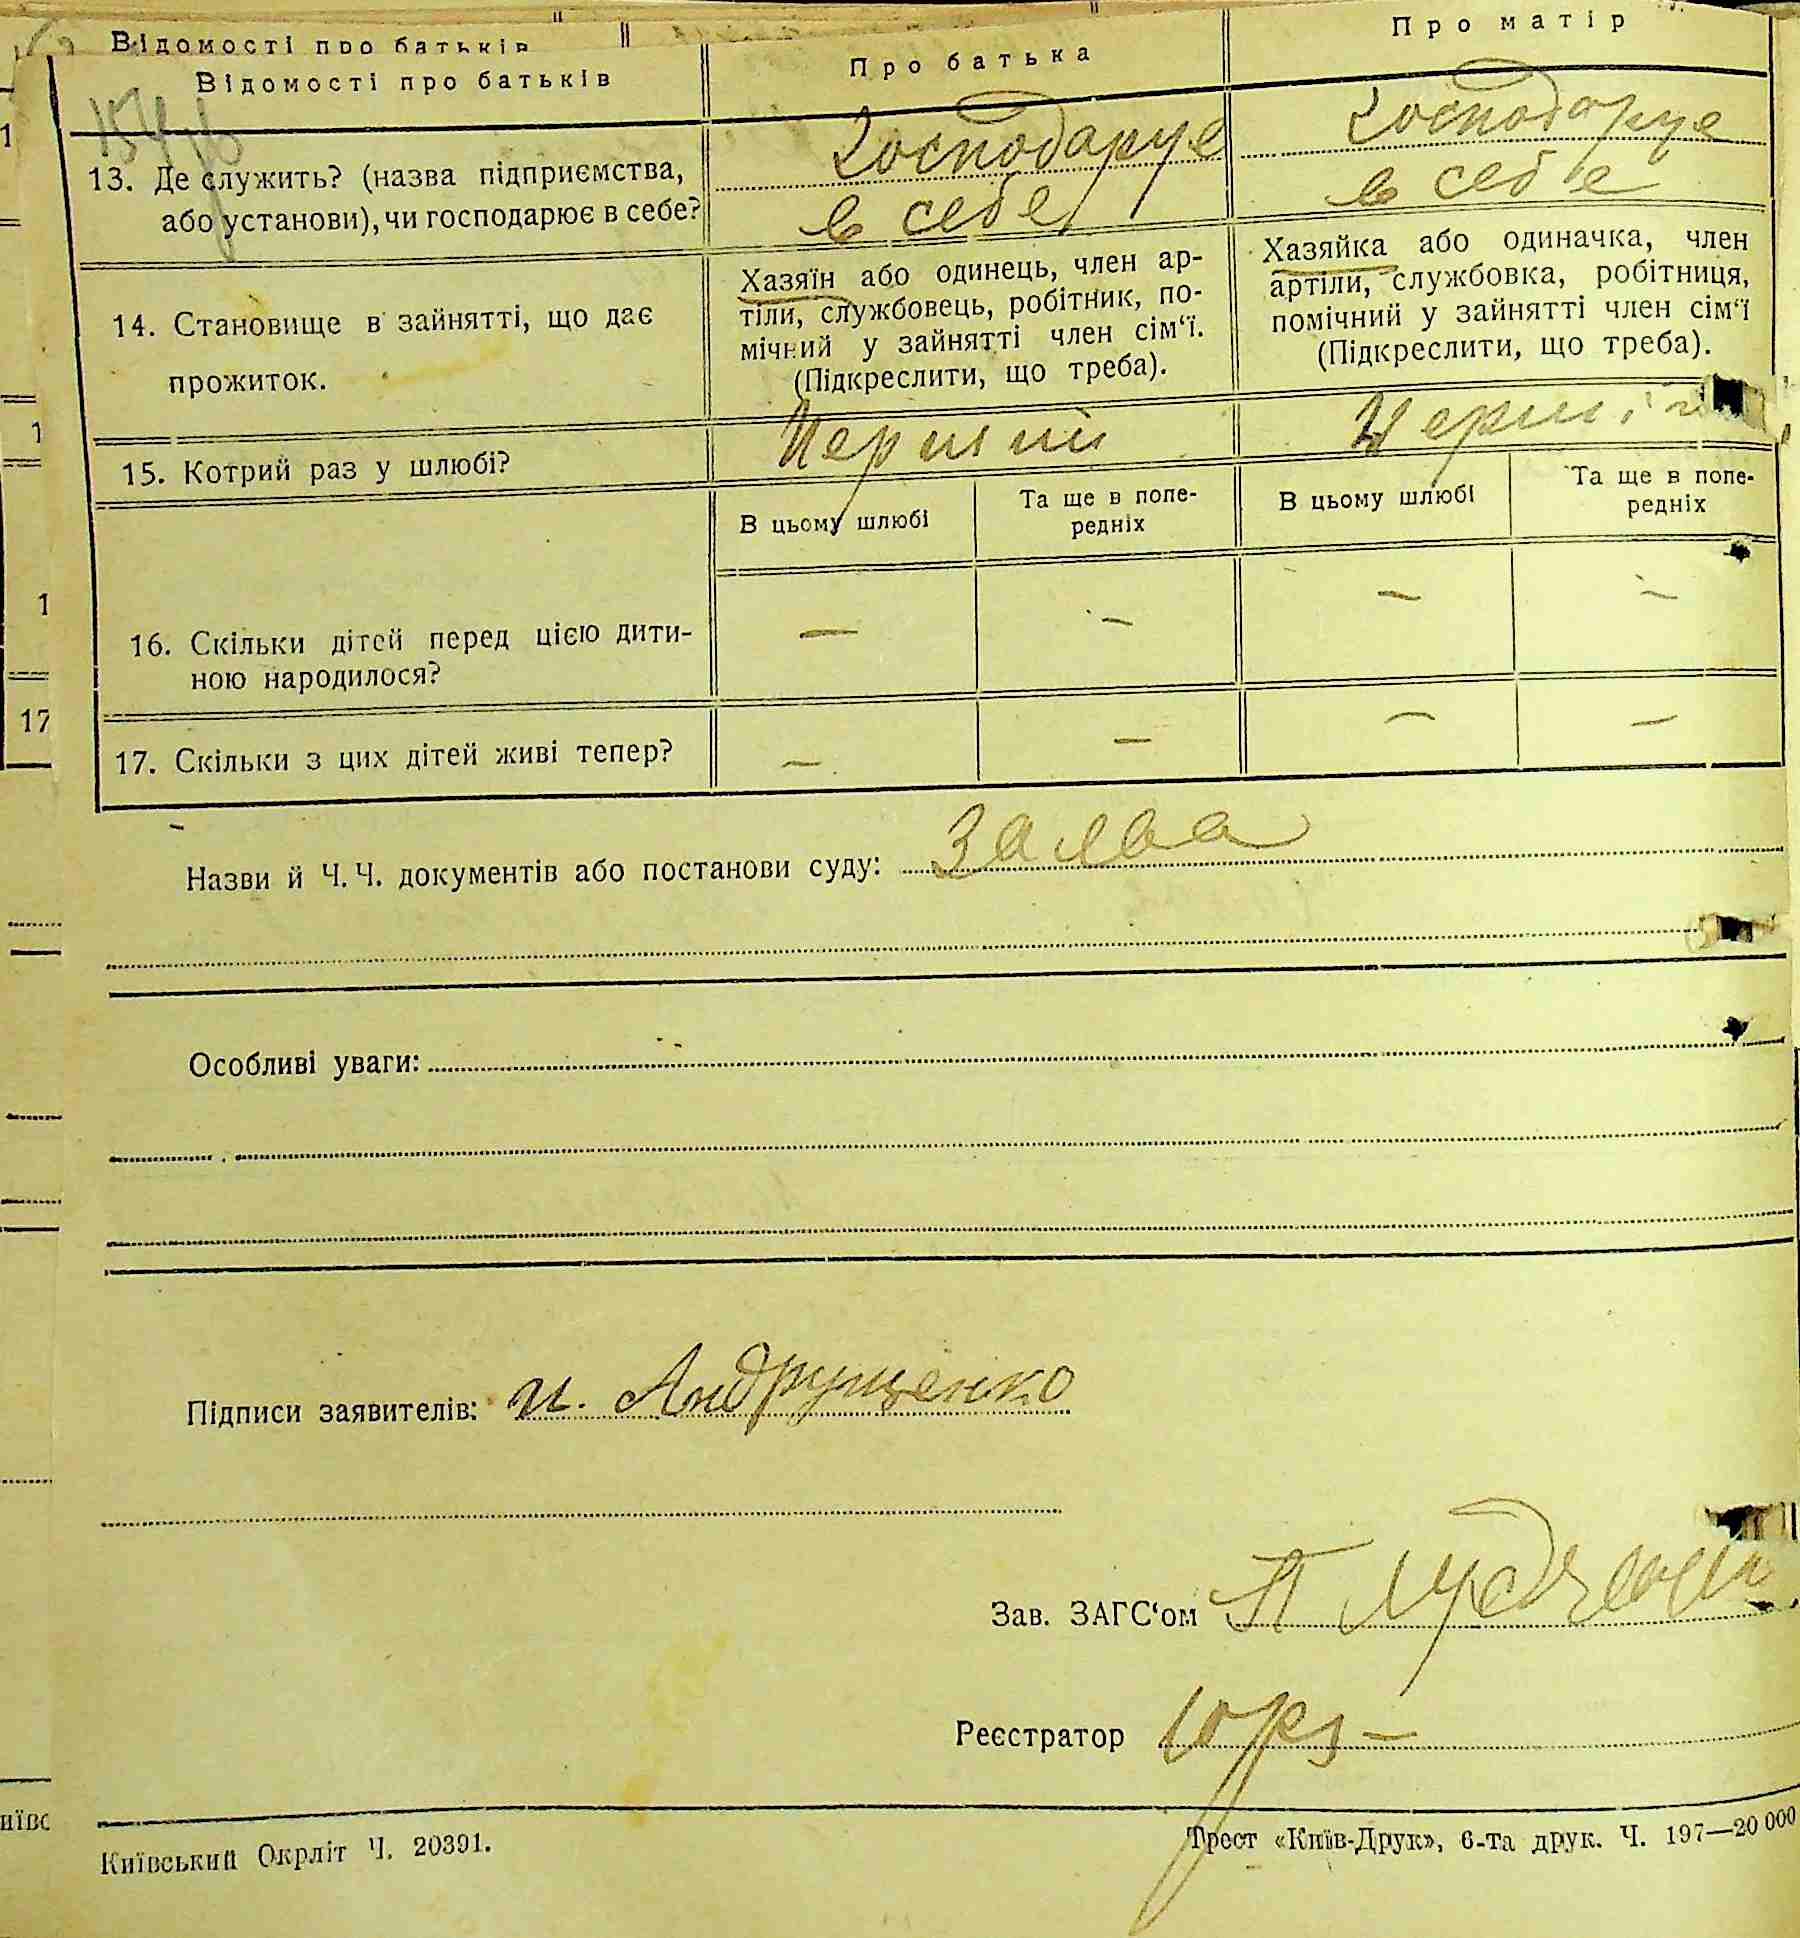 Відомості про батьків
Відомості про батьків
Про батька
Про матір
13. Де служить? (назва підприємства,
або установи), чи господарює в себе?
Господарує
в себе
Господарує
в себе
14. Становище в зайнятті, що дає
прожиток.
Хазяїн або одинець, член ар-
тіли, службовець, робітник, по-
мічний у зайнятті член сім‘ї.
(Підкреслити, що треба).
Хазяйка або одиначка, член
артіли, службовка, робітниця,
помічний у зайнятті член сім‘ї
(Підкреслити, що треба).
15. Котрий раз у шлюбі?
Перший
В цьому шлюбі
Та ще в попе-
редніх
В цьому шлюбі
Та ще в попе-
редніх
16. Скільки дітей перед цією дити-
ною народилося?
— — — —
17. Скільки з цих дітей живі тепер?
— — — —
Назви й Ч. Ч. документів або постанови суду: Заява
Особливі уваги:
Підписи заявителів: и. Андрущенко
Зав. ЗАГС‘ом П
Реєстратор
Київський Окрліт Ч. 20391.
Трест «Київ-Друк», 6-та друк. Ч. 197—20 000
1
1
1
17